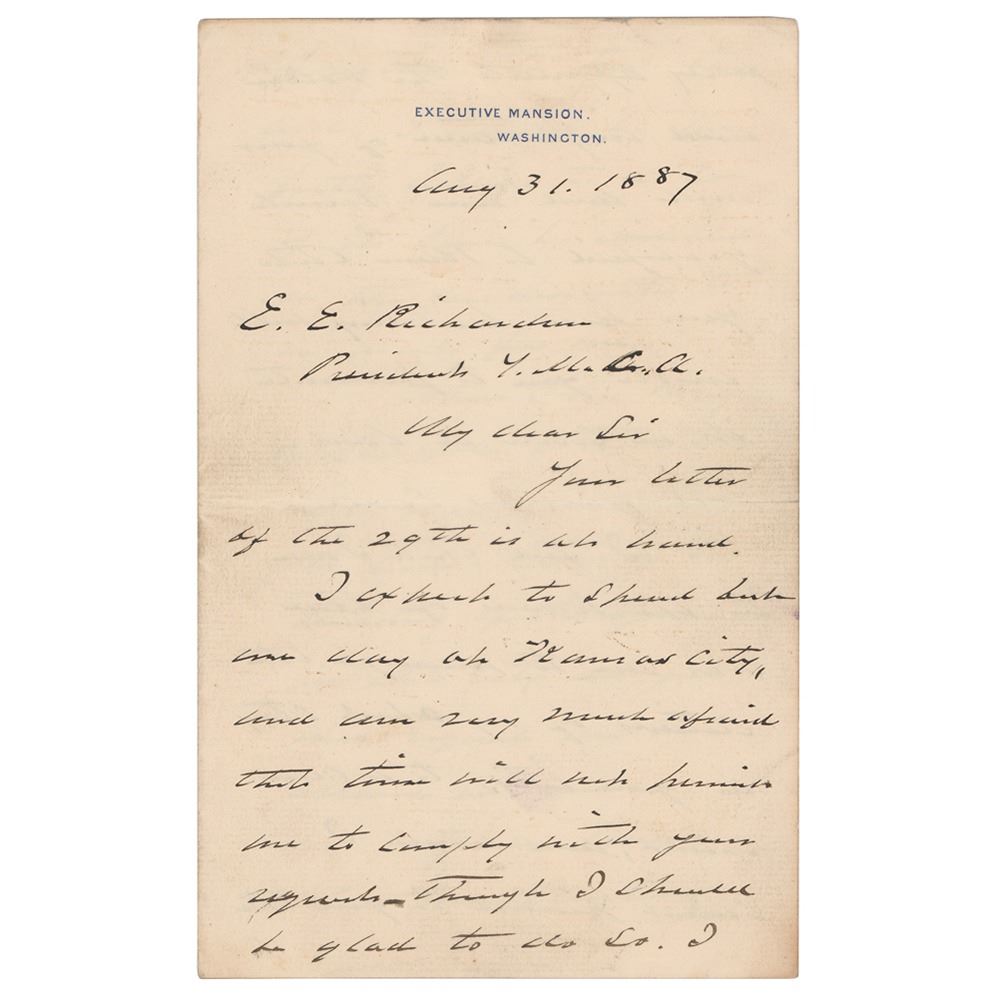 EXECUTIVE MANSION.
WASHINGTON.
Aug 31. 1887
E. E. Richardson
President Y. M. C. A.
My dear Sir
Your letter
of the 29th is at hand.
I expect to spend but
one day at Kansas City,
and am very much afraid
that time will not permit
me to comply with your
request - though I should
be glad to do so. I